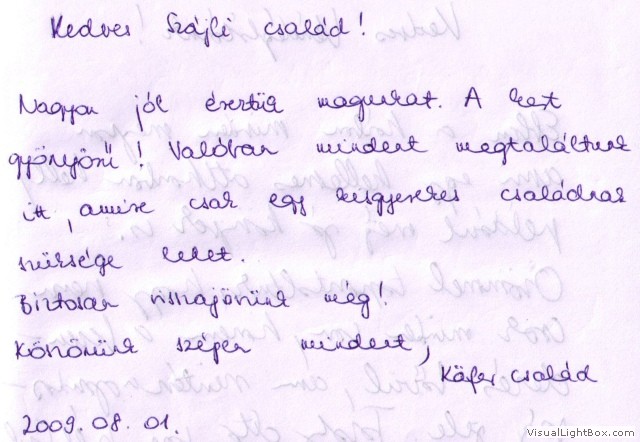 Kedves Szájli család!
Nagyon jól éreztük magunkat. A kert
gyönyörű! Valóban mindent megtaláltunk
itt, amire csak egy kisgyerekes családnak
szüksége lehet.
Biztosan visszajövünk még!
Köszönünk szépen mindent,
Käfer család
2009. 08. 01.
VisualLightBox.com